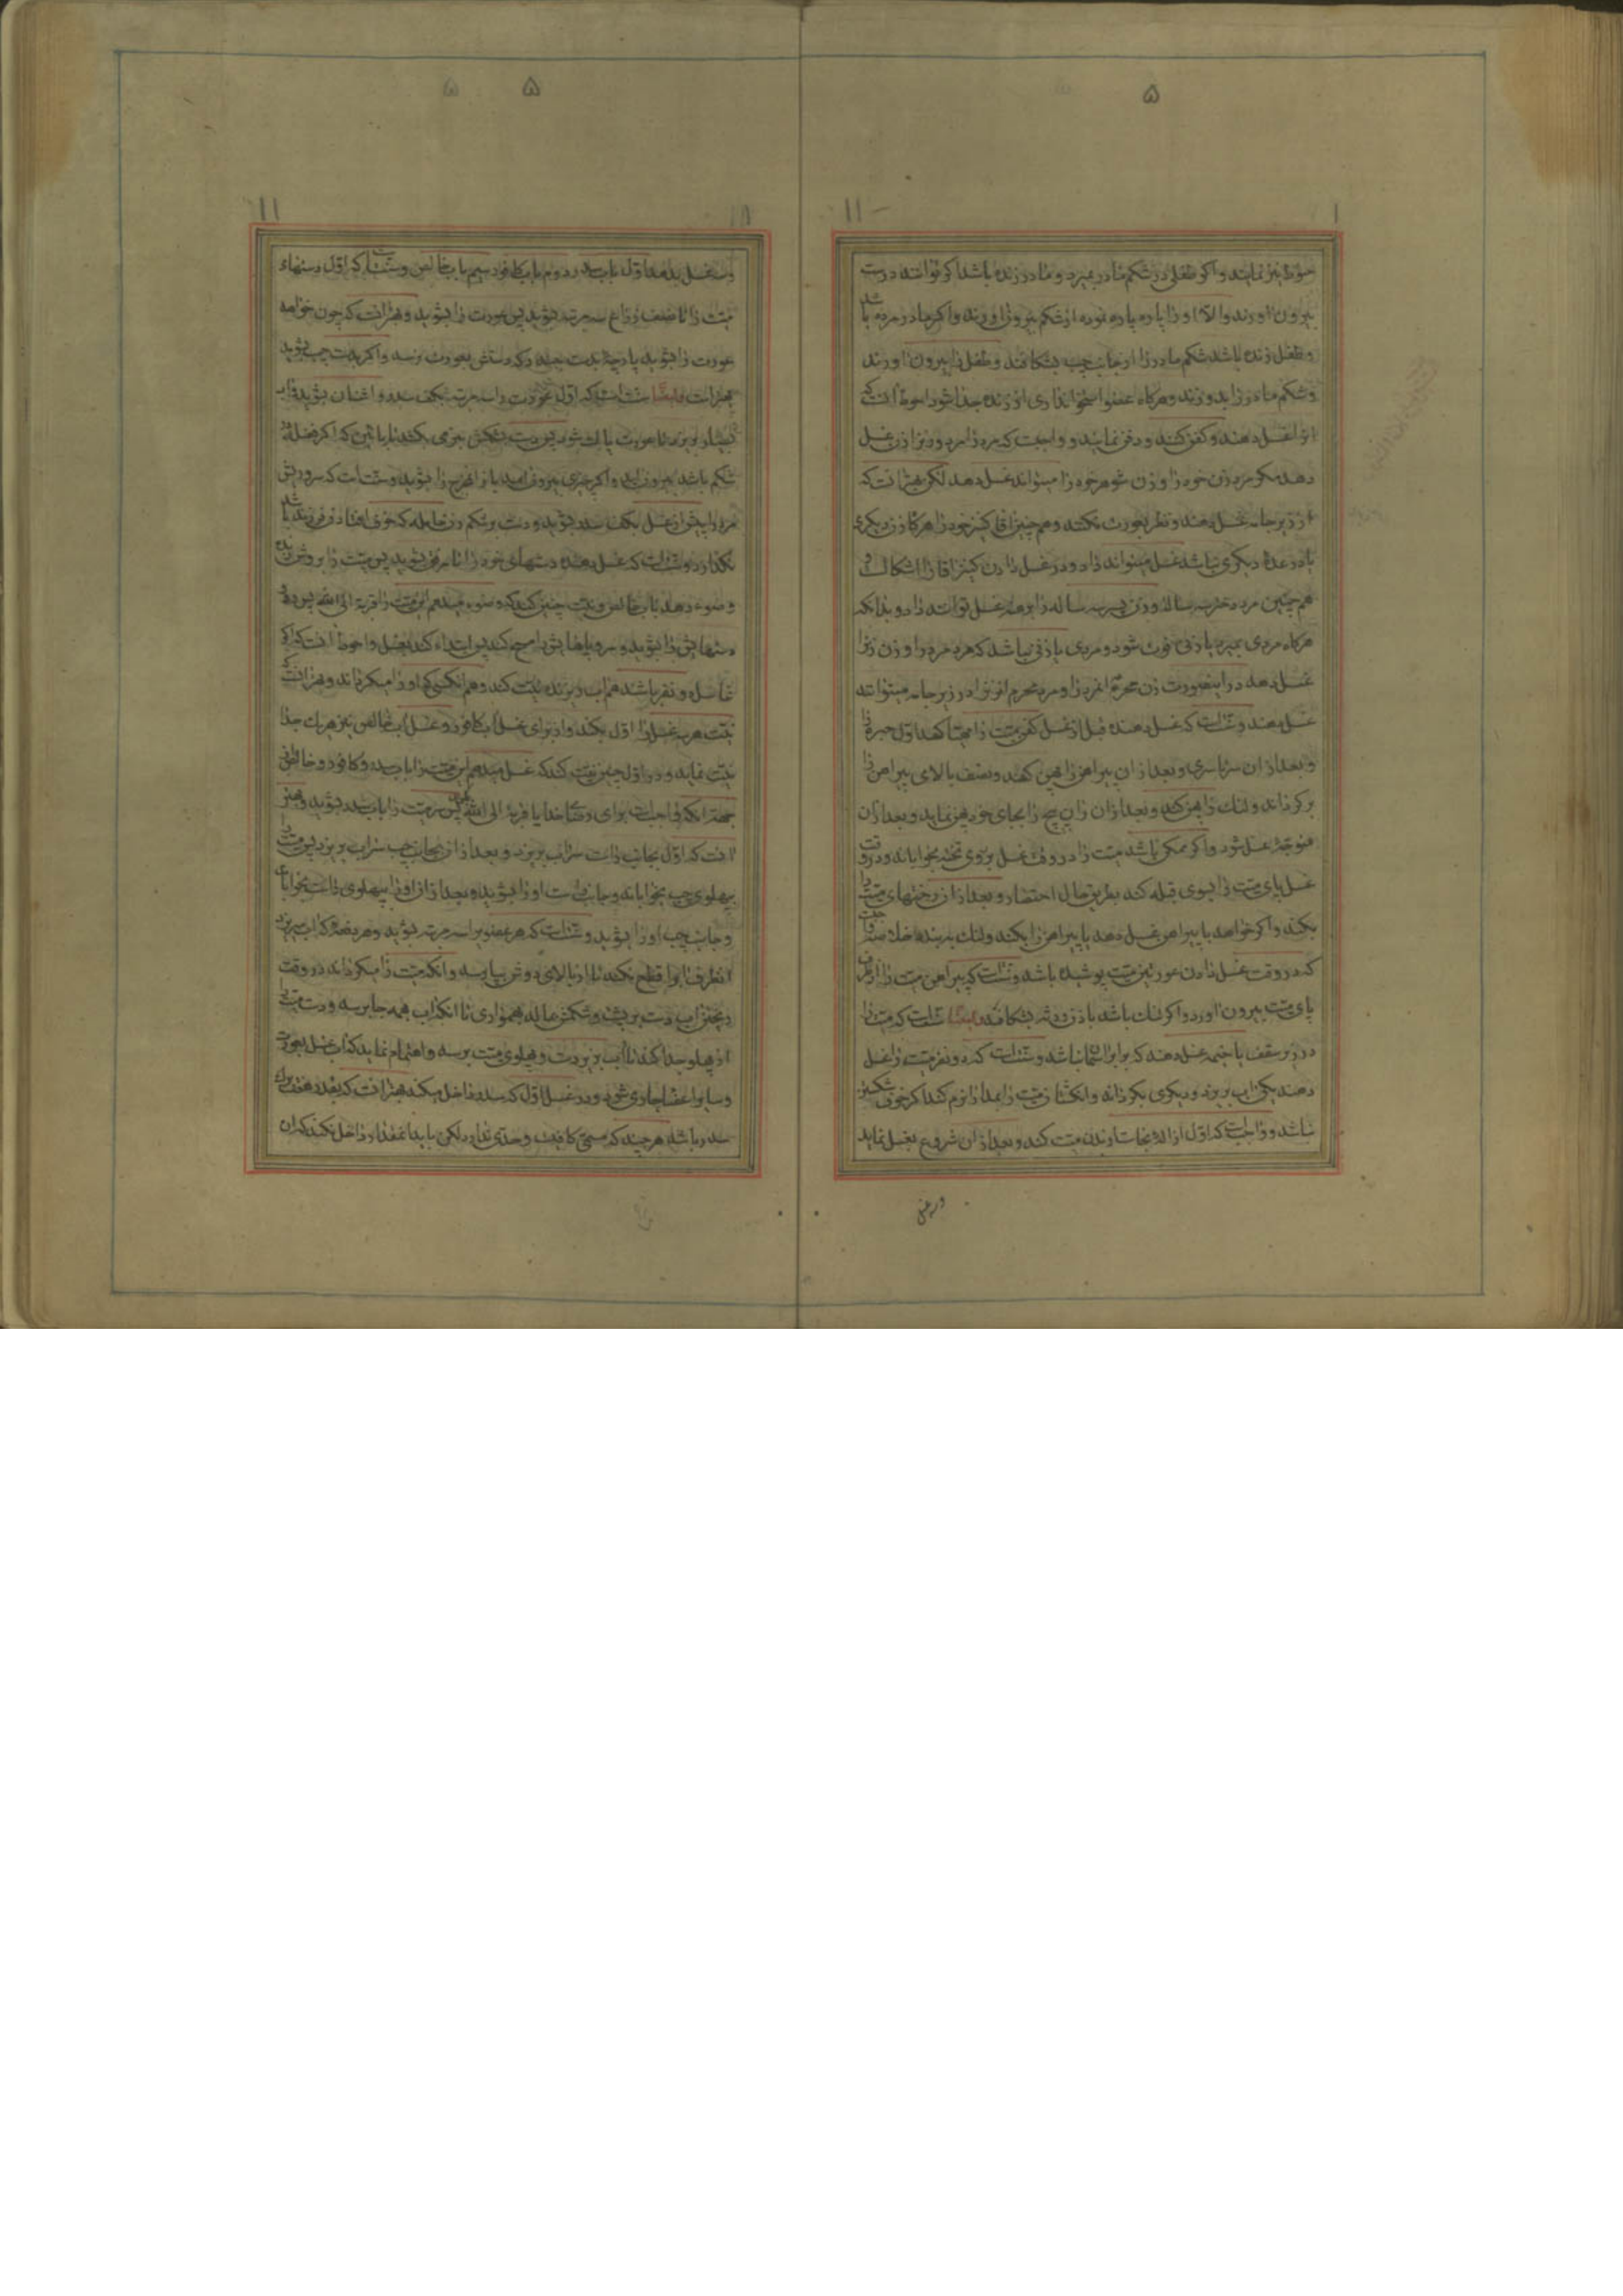 ۵
حنوط نیز نمایند و اکر طفلی در شکم مادر بمیرد و مادر زنده باشد اکر توانند درست
بیرون اورند و الا او را پاره پاره نموده از شکم بیرون اورند و اکر مادر مرده باشد
و طفل زنده باشد شکم مادر را از جانب چپ بشکافند و طفل را بیرون اورند
و شکم مادر را بدوزند و هرکاه عضو استخوانداری از زنده جدا شود احوط انست که
انرا غسل دهند و کفن کنند و دفن نمایند و واجبست که مرد را مرد و زنرا زن غسل
دهد مکر مرد زن خود را و زن شوهر خود را میتواند غسل دهد لکن بهتر انست که
از زیر جامه غسل دهند و نظر بعورت نکنند و هم چنین اقا کنیز خود را هرکاه زن دیکری
یا در عده دیکری نباشد غسل میتواند داد و در غسل دادن کنیز اقا را اشکالست و
هم چنین مرد دختر سه ساله و زن پسر سه ساله را برهنه غسل تواند داد و بدانکه
هرکاه مردی بمیرد یا زنی فوت شود و مردی یا زنی نباشد که مرد مرد را و زن زنرا
غسل دهد در اینصورت زن محرم انمرد را و مرد محرم انزنرا در زیر جامه میتواند
غسل دهند و سنت است که غسل دهنده قبل از غسل کفن میت را مهیا کند اول حبره را
و بعد از ان سرتاسری و بعد از ان پیراهن را پهن کند و نصف بالای پیراهن را
بر کرداند و لنک را پهن کند و بعد از ان ران پیچ را بجای خود پهن نماید و بعد از ان
متوجه غسل شود و اکر ممکن باشد میت را در وقت غسل بر روی تخته بخواباند و در وقت
غسل پای میت را بسوی قبله کند بطریق حال احتضار و بعد از ان رختهای میت را
بکند و اکر خواهد با پیراهن غسل دهد یا پیراهن را بکند و لنک به بندد
که در وقت غسل دادن عورتین میت پوشیده باشد و سنت است که پیراهن میت را از طرف
پای میت بیرون اورد و اکر تنک باشد باذن ورثه بشکافد و ایضا سنت است که میت را
در زیر سقف یا خیمه غسل دهند که برابر اسمان نباشد و سنت است که دو نفر میت را غسل
دهند یکی اب بریزد و دیکری بکرداند و انکشتان میت را بمدارا نرم کند اکر خوف شکستن
نباشد و واجبست که اول ازاله نجاست از بدن میت کند و بعد از ان شروع بغسل نماید
۵
و سه غسل بدهد اول باب سدر دوم باب کافور سیم باب خالص و سنت است که اول دستهای
میت را تا نصف ذراع سه مرتبه بشوید پس عورت را بشوید و بهتر انست که چون خواهد
عورت را بشوید پارچه بدست پیچد که دستش بعورت نرسد و اکر بدست چپ بشوید
بهتر است و ایضا سنت است که اول عورت را سه مرتبه بکف سدر و اشنان بشوید و اب
بسیار بریزد تا عورت پاک شود پس دست بشکمش بنرمی بکشد تا پائین که اکر فضله در
شکم باشد بیرون اید و اکر چیزی بیرون امد باز انمخرج را بشوید و سنت است که سر و ریش
مرد را پیش از غسل بکف سدر بشوید و دست بر شکم زن حامله که خوف افتادن فرزند باشد
نکذارد و سنت است که غسل دهنده دستهای خود را تا مرفق بشوید پس میت را بروش زنده
وضوء دهد باب خالص و نیت چنین کند که وضوء میدهم این میت را قربة الی الله پس رو و
دستهایش را بشوید و سر و پاهایش را مسح کند پس ابتداء کند بغسل و احوط انست که اکر
غاسل دو نفر باشد هم اب ریزنده نیت کند و هم انکسی که او را میکرداند و بهتر انست که
نیت هر سه غسل را اول بکند و از برای غسل اب کافور و غسل اب خالص نیز هر یک جدا
نیت نماید و در اول چنین نیت کند که غسل میدهم این میت را باب سدر و کافور و خالص
جهة انکه واجبست برای رضای خدا یا قربة الی الله پس سر میت را باب سدر بشوید و بهتر
انست که اول بجانب راست سر اب بریزد و بعد از ان بجانب چپ سر اب بریزد پس میت را
بپهلوی چپ بخواباند و جانب راست او را بشوید و بعد از ان او را بپهلوی راست بخواباند
و جانب چپ او را بشوید و سنت است که هر عضویرا سه مرتبه بشوید و هر دفعه که اب میریزد
انطرف را قطع نکند تا از بالای دوش بپا رسد و انکه میت را میکرداند در وقت
ریختن اب دست بر پشت و شکمش مالد بهمواری تا انکه اب بهمه جا برسد و دست میت را
از پهلو جدا کند تا اب بزیر دست و پهلوی میت برسد و اهتمام نماید که اب غسل بعورت
و سایر اعضا جاری شود و در غسل اول که سدر داخل میکند بهتر انست که بقدر هفت برک
سدر باشد هر چند که مسمی کافیست و حدی ندارد لکن باید انمقدار داخل نکند که ان